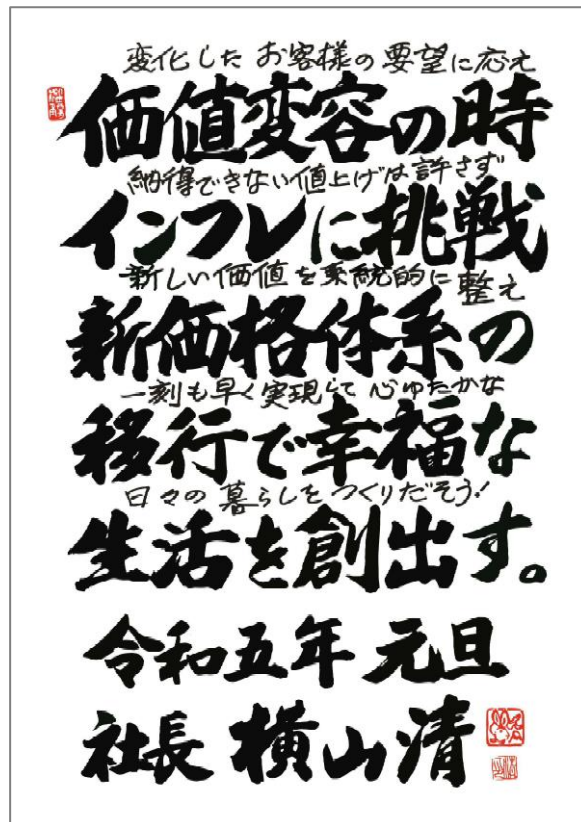 変化した お客様の要望に応え
価値変容の時
納得できない値上げは許さず
インフレに挑戦
新しい価値を系統的に整え
新価格体系の
一刻も早く実現して心ゆたかな
移行で幸福な
日々の暮らしをつくりだそう!
生活を創出す。
令和五年 元旦
社長 横山清